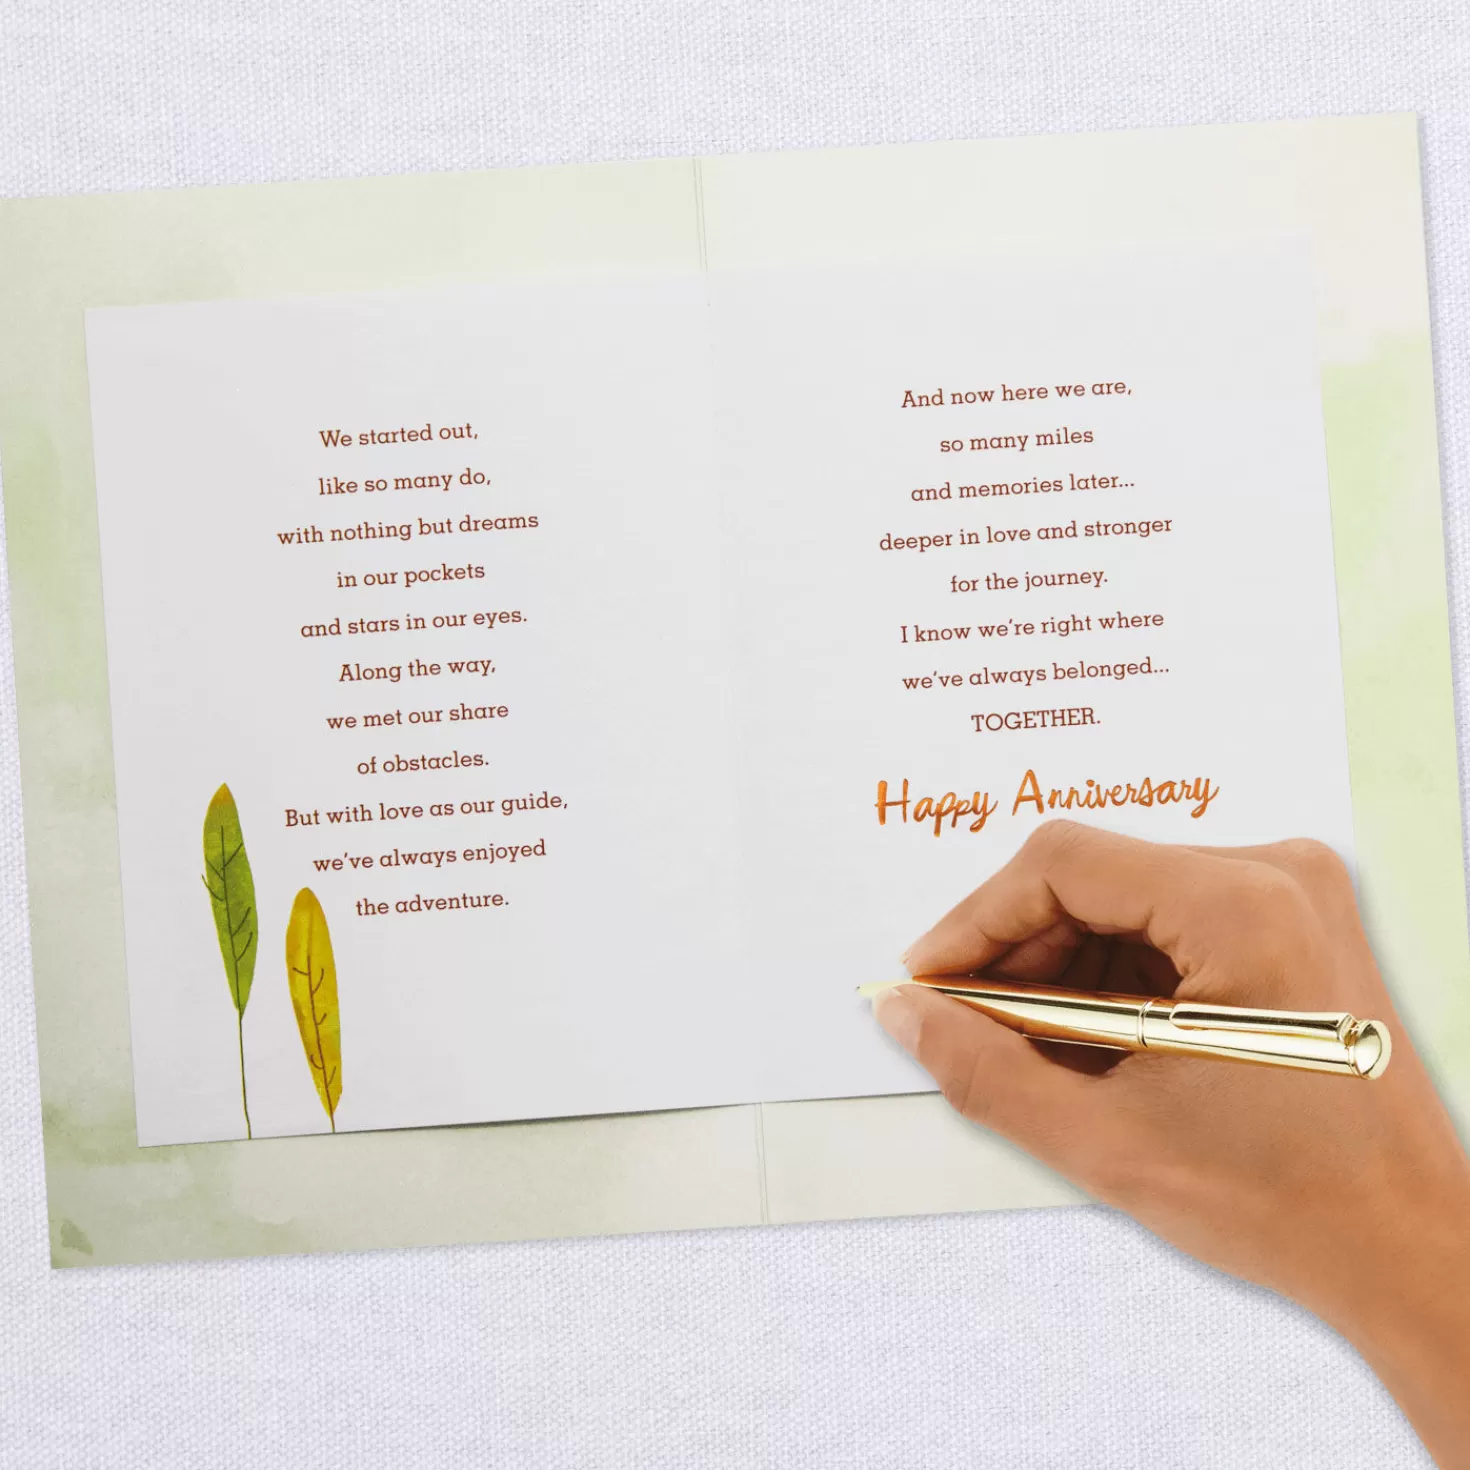 We started out,
like so many do,
with nothing but dreams
in our pockets
and stars in our eyes.
Along the way,
we met our share
of obstacles.
But with love as our guide,
we've always enjoyed
the adventure.
And now here we are,
so many miles
and memories later...
deeper in love and stronger
for the journey.
I know we're right where
we've always belonged...
TOGETHER.
Happy Anniversary